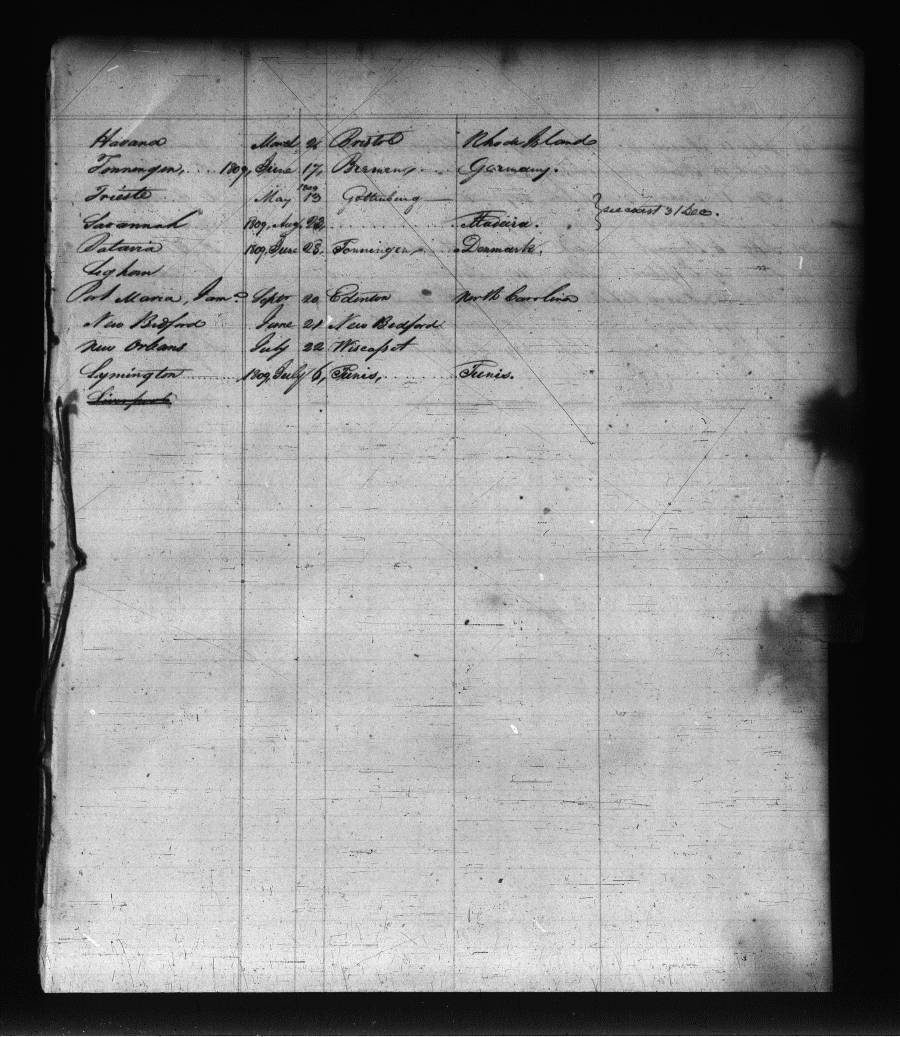 Havana March 21 Bristol Rhode Island
Tonningen, .... 1809, June 17, Bremen, .... Germany.
Trieste May 1809 13 Gottenburg
see acct 31 Dec.
Savannah 1809, Aug. 23, .......... Madeira.
Batavia 1809, June 23. Tonningen, Denmark.
Leghorn
Port Maria, Jamª Septr 20 Edenton North Carolina
New Bedford June 21 New Bedford
New Orleans July 22 Wiscaset
Lymington .......... 1809, July 6, Tunis, ........ Tunis.
Liverpool